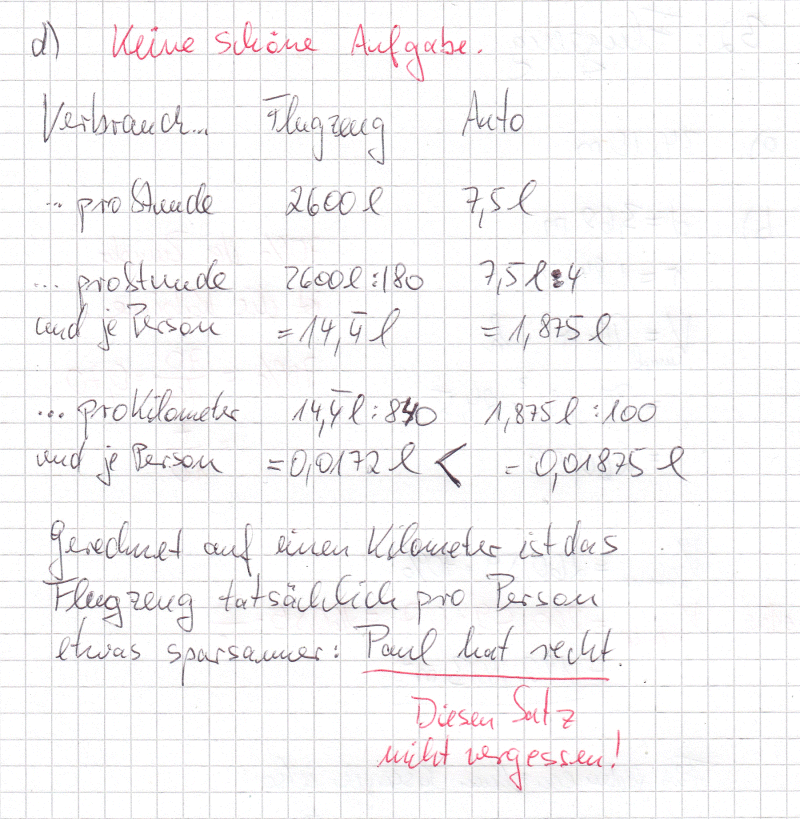 d) Keine schöne Aufgabe.
Verbrauch... Flugzeug Auto
... pro Stunde 2600 l 7,5 l
... pro Stunde 2600 l : 180 7,5 l : 4
und je Person = 14,4̅ l = 1,875 l
... pro Kilometer 14,4̅ l : 840 1,875 l : 100
und je Person = 0,0172 l < = 0,01875 l
Gerechnet auf einen Kilometer ist das
Flugzeug tatsächlich pro Person
etwas sparsamer: Paul hat recht.
Diesen Satz
nicht vergessen!